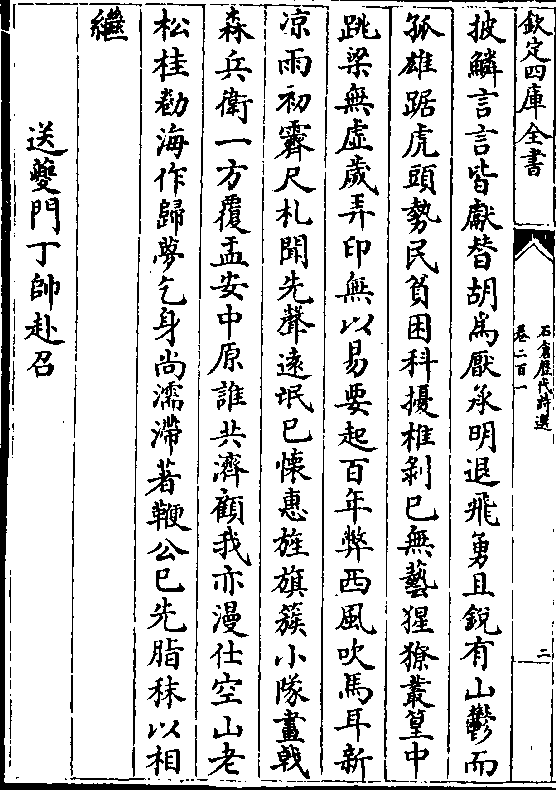 欽定四庫全書
石倉歷代詩選
卷二百一
二
披鱗言言皆獻替胡為厭承明退飛勇且銳有山鬱而
孤雄踞虎頭勢民貧困科擾椎剝已無藝猩獠叢篁中
跳梁無虛歲弄印無以易要起百年弊西風吹馬耳新
凉雨初霽尺札聞先聲遠氓已懐惠旌旗簇小隊畫戟
森兵衛一方覆盂安中原誰共濟顧我亦漫仕空山老
松桂勸海作歸夢乞身尚濡滯著鞭公已先脂秣以相
繼
送夔門丁帥赴召